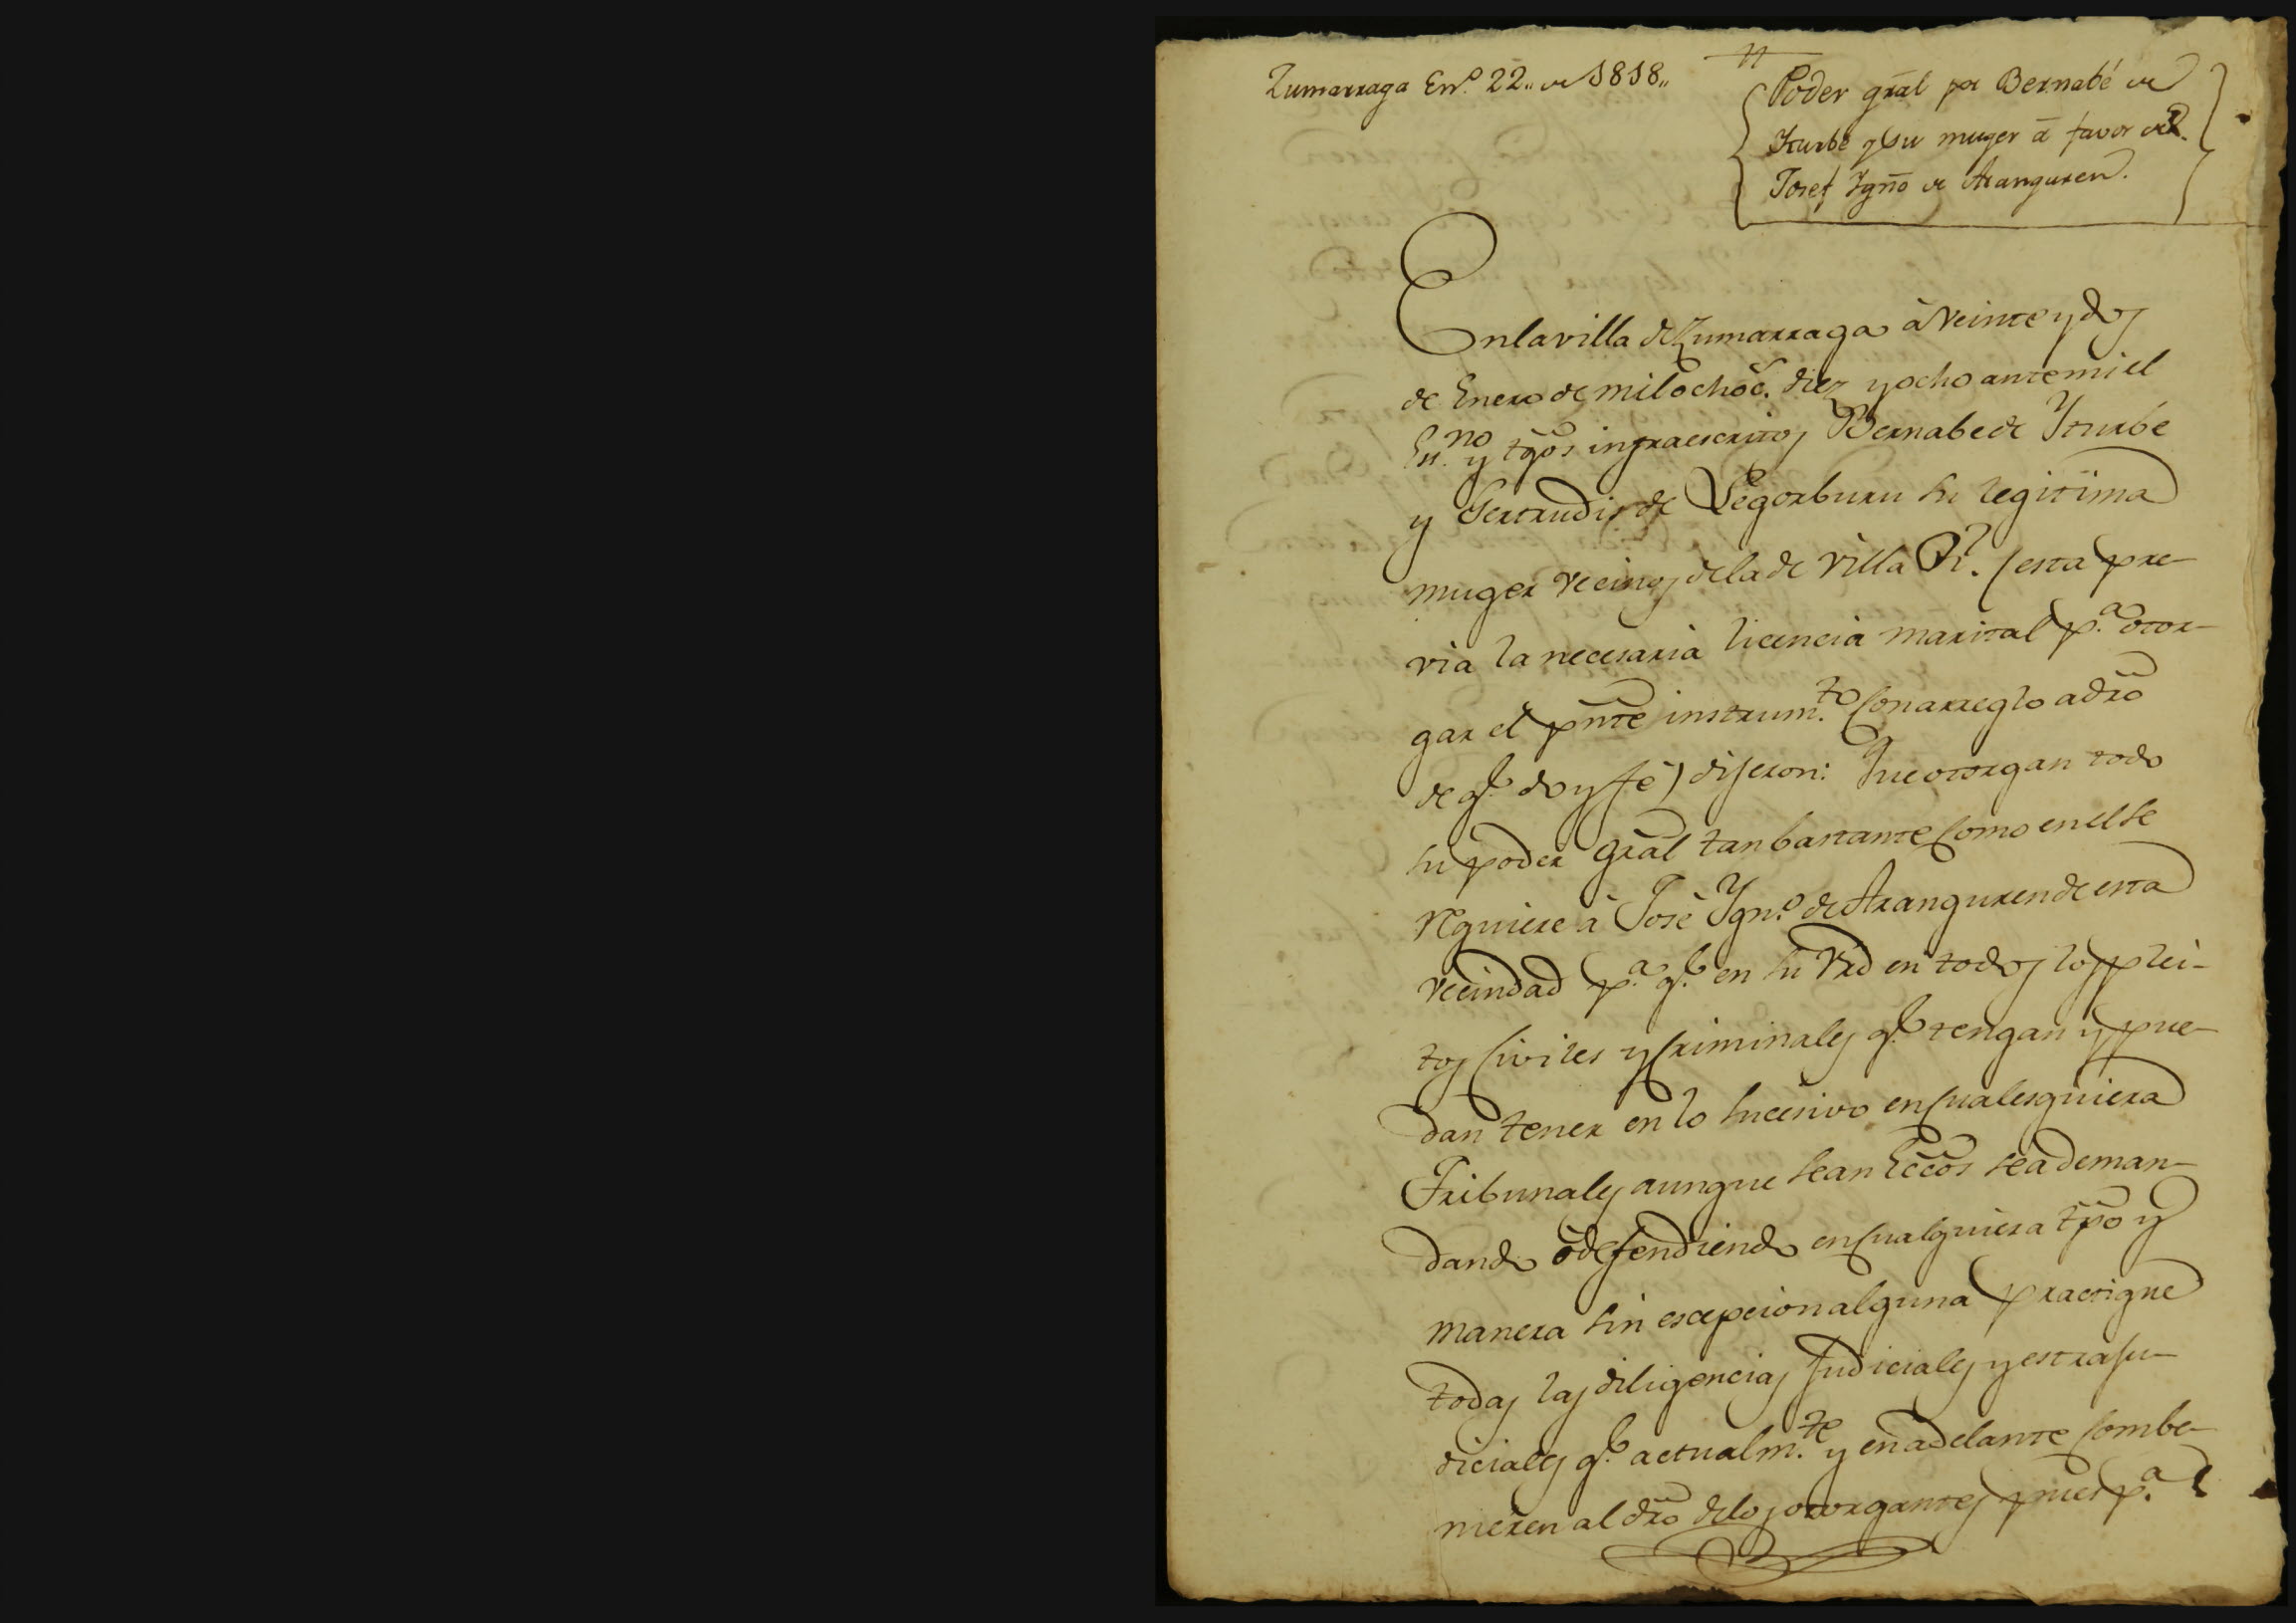 Zumarraga En.o 22,, de 1818,,
Poder gral por Bernabé de
Yturbe y su muger à favor de
Josef Ygño de Aranguren.
En la villa de Zumarraga à veinte y dos
de Enero de mil ochoc.s diez y ocho ante mi el
Es.no y tgos infraescritos Bernabe de Yturbe
y Gertrudis de Legorburu su legitima
muger vecinos de la de Villa R.l (esta pre-
via la necesaria licencia marital p.a otor-
gar el pnte instrum.to con arreglo a dro
de q.e doy fé) dijeron: Que otorgan todo
su poder gral tan bastante como en el se
requiere à José Ygn.o de Aranguren de esta
vecindad p.a q.e en su vrd en todos los plei-
tos civiles y criminales q.e tengan y pue-
dan tener en lo sucesivo en cualesquiera
Tribunales aunque sean Eccos sea deman-
dando ò defendiendo en cualquiera tpo y
manera sin escepcion alguna practique
todas las diligencias judiciales y estraju-
diciales q.e actualm.te y en adelante combi-
nieren al dro de los otorgantes pues p.a